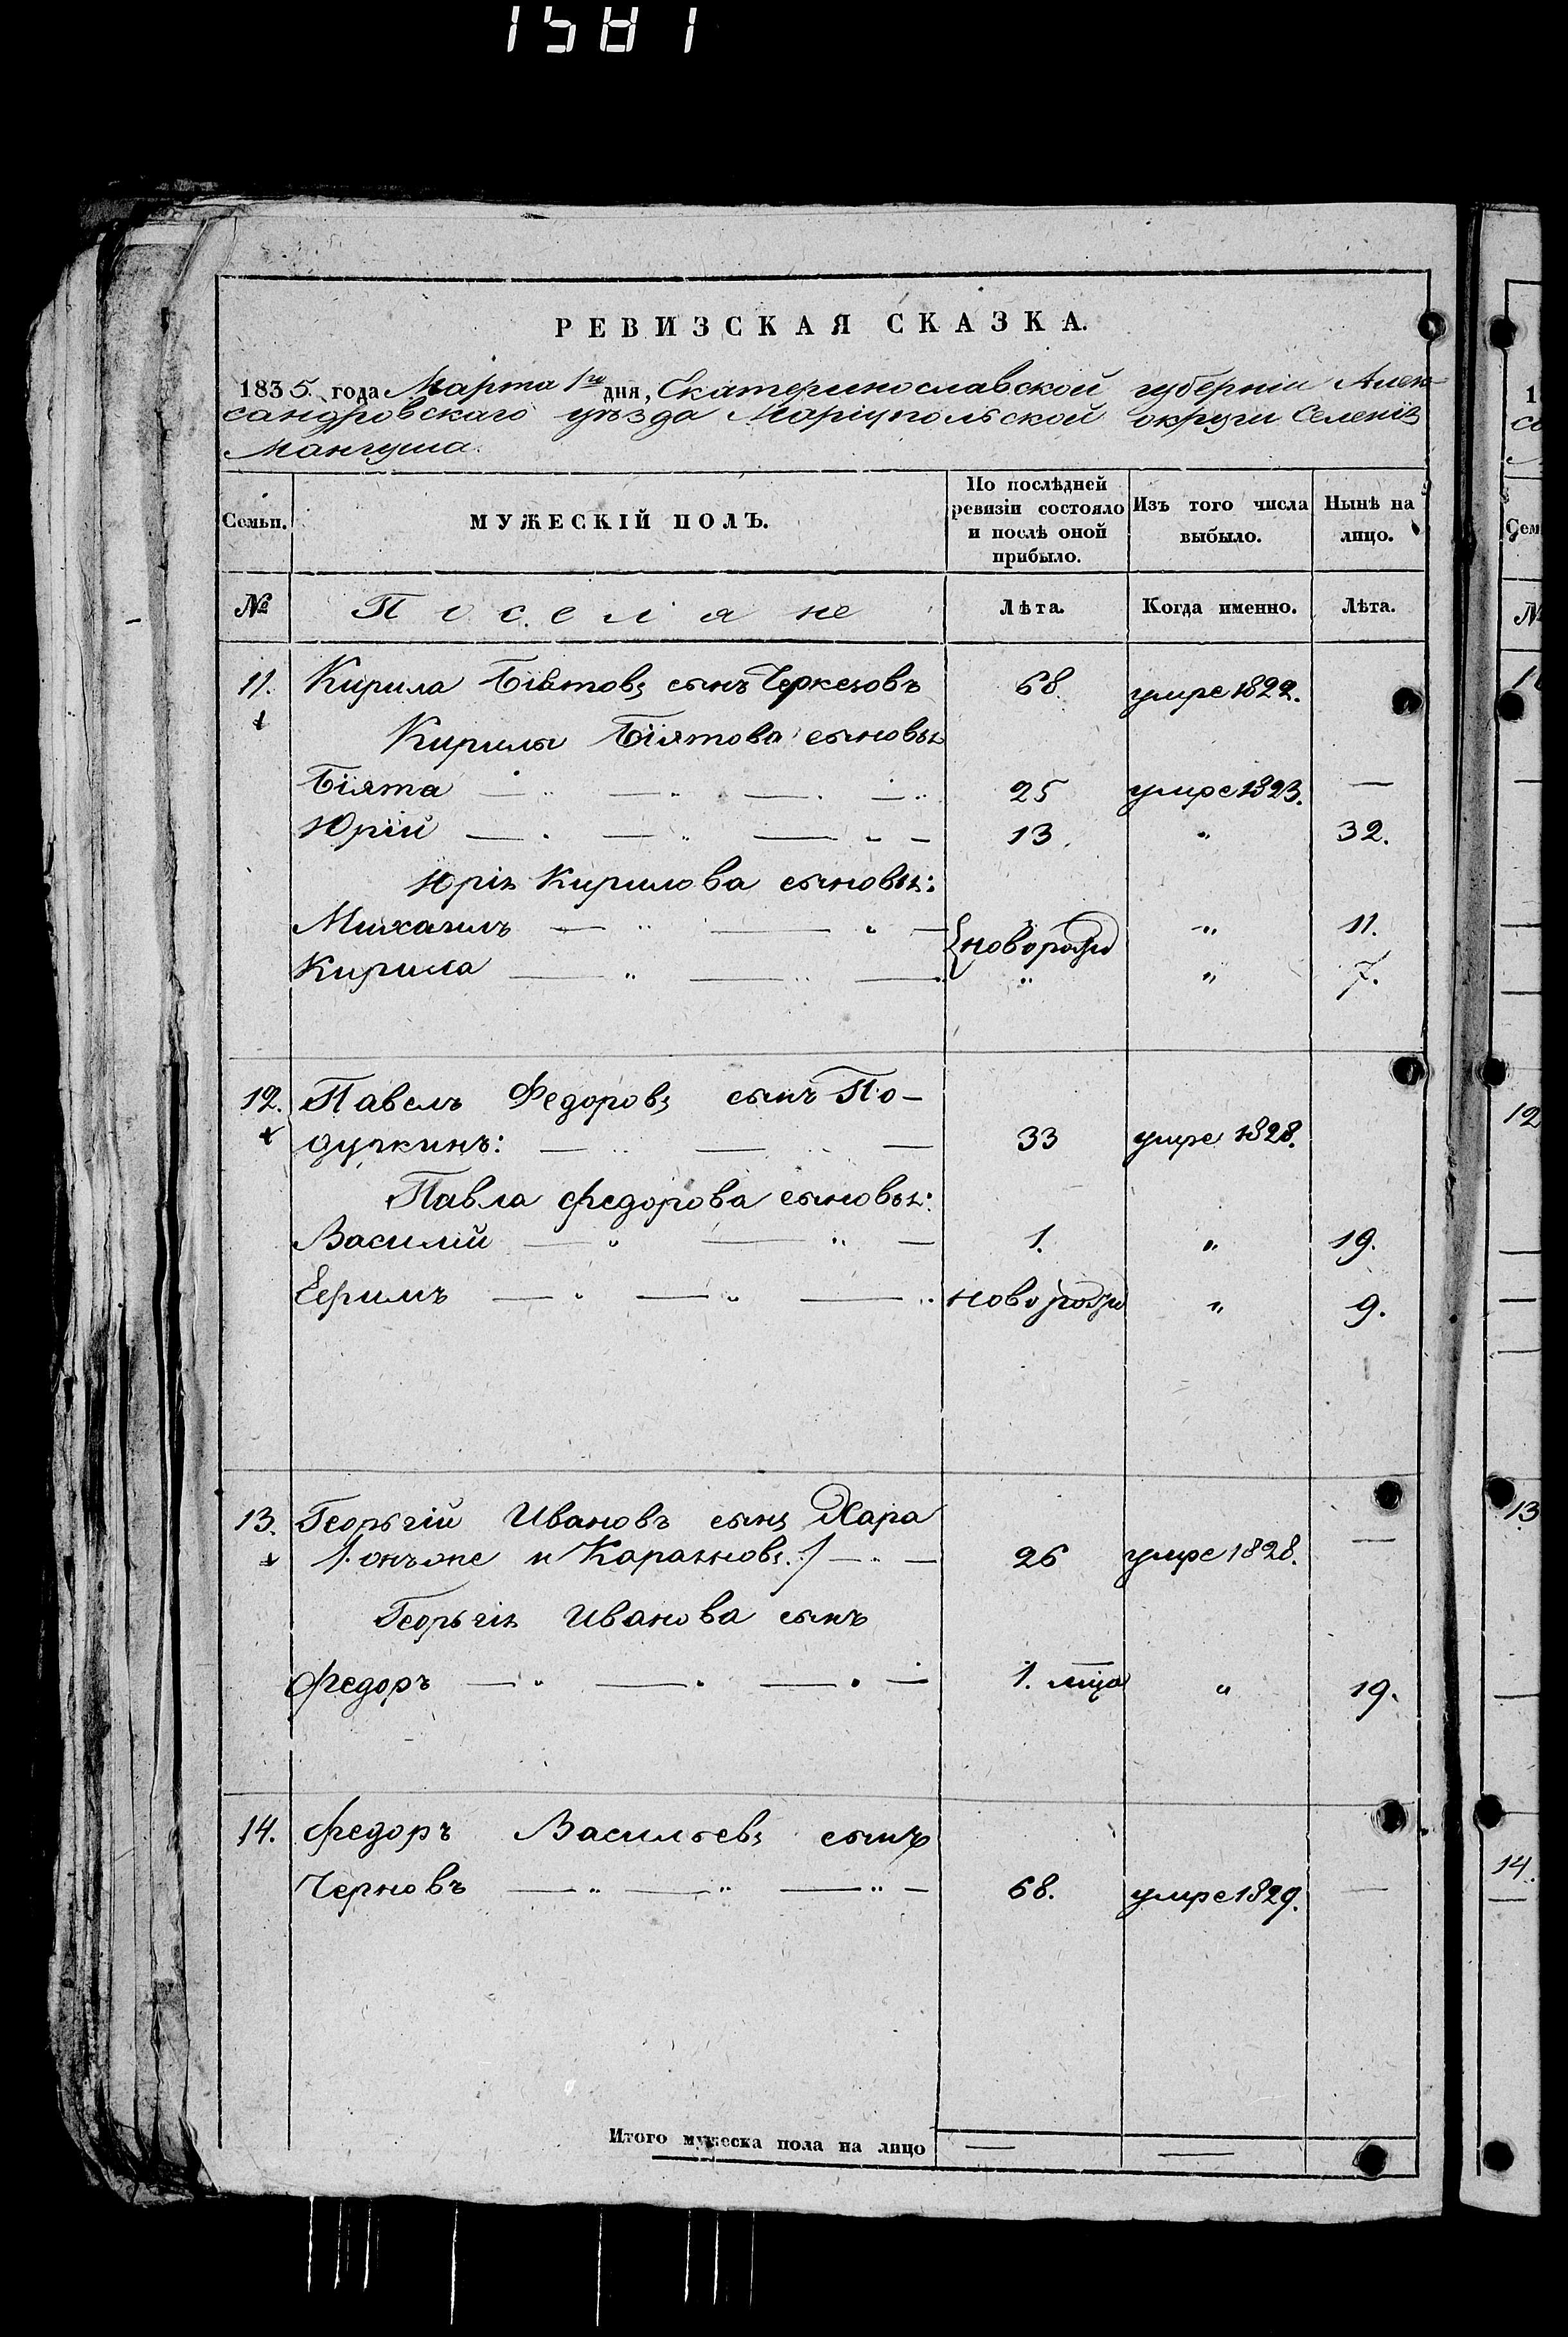 1581
РЕВИЗСКАЯ СКАЗКА.
1835 года Марта 1го дня, Екатеринославской губерніи Алек-
сандровскаго уѣзда Маріупольской округи Селенія
Мангуша.
Семьи. МУЖЕСКІЙ ПОЛЪ. По послѣдней ревизіи состояло и послѣ оной прибыло. Изъ того числа выбыло. Нынѣ на лицо.
№ Поселяне Лѣта. Когда именно. Лѣта.
11. Кирила Біятовъ сынъ Черкезовъ 68. умре 1822.
Кирилы Біятова сыновья
Біята 25 умре 1823. —
Юрій 13. " 32.
Юрія Кирилова сыновья:
Михаилъ новорожд " 11.
Кирила " " 7.
12. Павелъ Федоровъ сынъ По-
дуркинъ: 33 умре 1828.
Павла Федорова сыновья:
Василій 1. " 19.
Ефимъ новорожд " 9.
13. Георьгій Ивановъ сынъ Хара
/: онъ же и :/ 26 умре 1828. —
Георьгія Иванова сынъ
Федоръ 1. мца " 19.
14. Федоръ Васильевъ сынъ
Черновъ 68. умре 1829. —
Итого мужеска пола на лицо — —
1
со
Сем
№
11
12
13.
14.